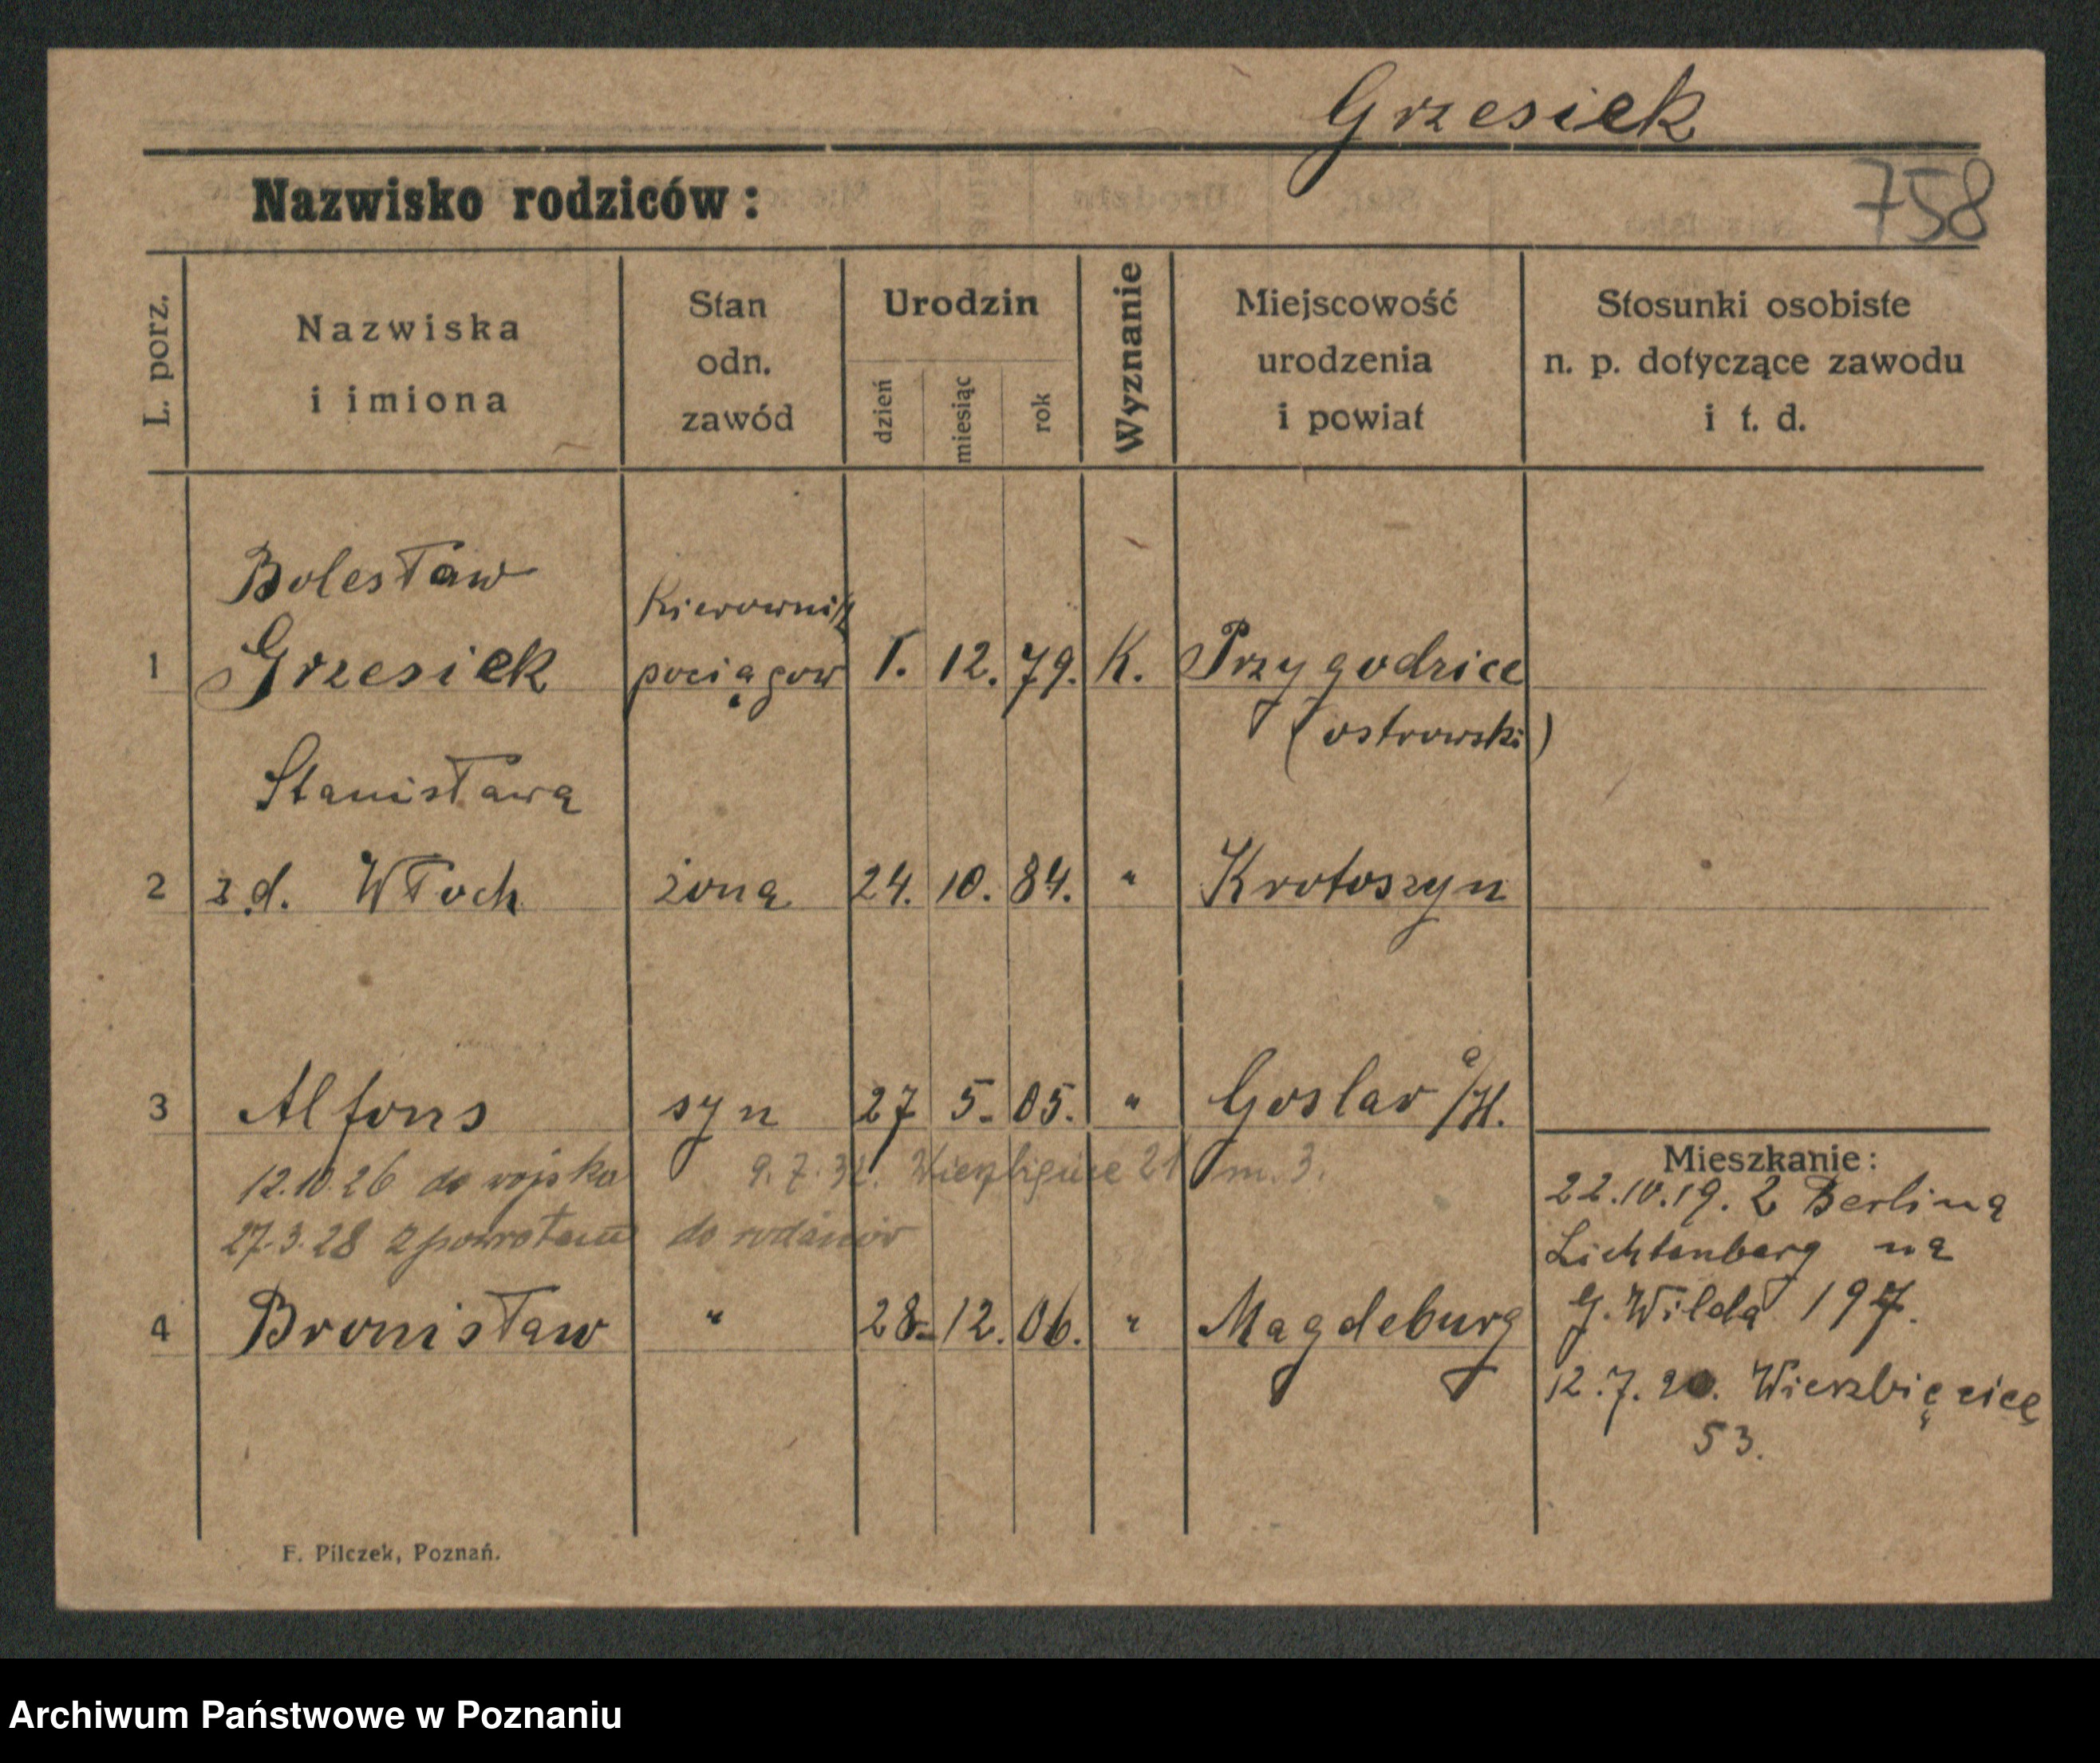 Grzesiek
Nazwisko rodziców:
758
L. porz.
Nazwiska
i imiona
Stan
odn.
zawód
Urodzin
dzień
miesiąc
rok
Wyznanie
Miejscowość
urodzenia
i powiat
Stosunki osobiste
n. p. dotyczące zawodu
i t. d.
Bolesław
Kierownik
1 Grzesiek pociągow 1. 12. 79. K. Przygodzice
(ostrowski)
Stanisława
2 z d. Włoch żona 24. 10. 84. " Krotoszyn
3 Alfons syn 27 5. 05. " Goslar a/H.
12.10.26 do wojska 9.7.32. 21 m. 3.
27.3.28 z powrotem do rodziców
4 Bronisław " 28. 12. 06. " Magdeburg
Mieszkanie:
22.10.19. z Berlina
Lichtenberg na
G. Wilda 197.
12.7.20. Wierzbięcice
53.
F. Pilczek, Poznań.
Archiwum Państwowe w Poznaniu